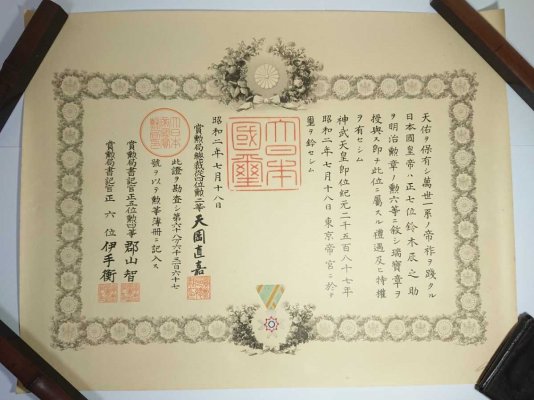 天佑ヲ保有シ萬世一系ノ帝祚ヲ踐タル
日本國皇帝ハ正七位鈴木辰之助
ヲ明治勲章ノ勲六等ニ敘シ瑞寶章ヲ
授與ス即チ此位ニ屬スル禮遇及ヒ特權
ヲ有セシム
神武天皇即位紀元二千五百八十七年
昭和二年七月十八日東京帝宮ニ於テ
璽ヲ鈐セシム
大日本
國璽
昭和二年七月十八日
賞勲局總裁從四位勲二等天岡直嘉
此證ヲ勘査シ第六十八万六千三百六十七
號ヲ以テ勲等簿冊ニ記入ス
賞勲局書記官正五位勲四等郡山智
賞勲局書記官正六位伊手衡